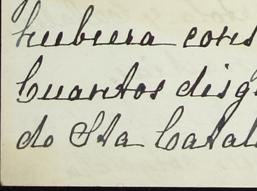 hubiera cons
Cuantos disg
do Sta Catal